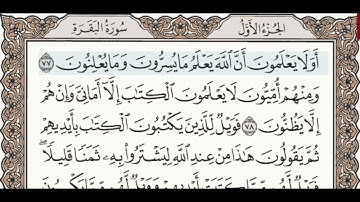 الجزء الأول
سورة البقرة
أَوَلَا يَعْلَمُونَ أَنَّ ٱللَّهَ يَعْلَمُ مَا يُسِرُّونَ وَمَا يُعْلِنُونَ ٧٧
وَمِنْهُمْ أُمِّيُّونَ لَا يَعْلَمُونَ ٱلْكِتَٰبَ إِلَّآ أَمَانِىَّ وَإِنْ هُمْ
إِلَّا يَظُنُّونَ ٧٨ فَوَيْلٌ لِّلَّذِينَ يَكْتُبُونَ ٱلْكِتَٰبَ بِأَيْدِيهِمْ
ثُمَّ يَقُولُونَ هَٰذَا مِنْ عِندِ ٱللَّهِ لِيَشْتَرُوا۟ بِهِۦ ثَمَنًا قَلِيلًا ۖ
فَوَيْلٌ لَّهُم مِّمَّا كَتَبَتْ أَيْدِيهِمْ وَوَيْلٌ لَّهُم مِّمَّا يَكْسِبُونَ